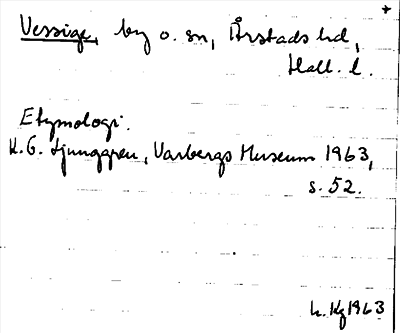 Vessige, by o. sn, Årstads hd,
Hall. l.
Etymologi.
K.G. Ljunggren, Varbergs Museum 1963,
s. 52.
h. Kg 1963